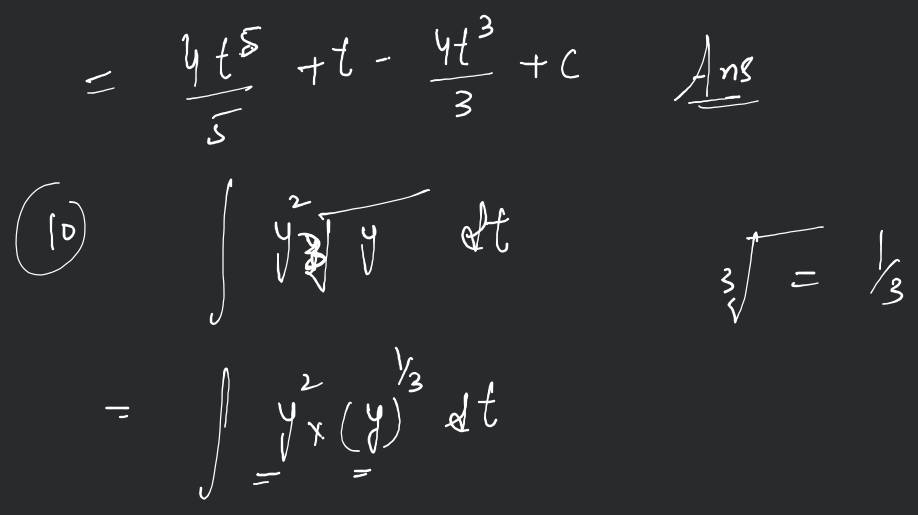 = 4t⁵/5 + t - 4t³/3 + c Ans
(10) ∫ y² ∛y dt
∛ = 1/3
= ∫ y² × (y)^1/3 dt